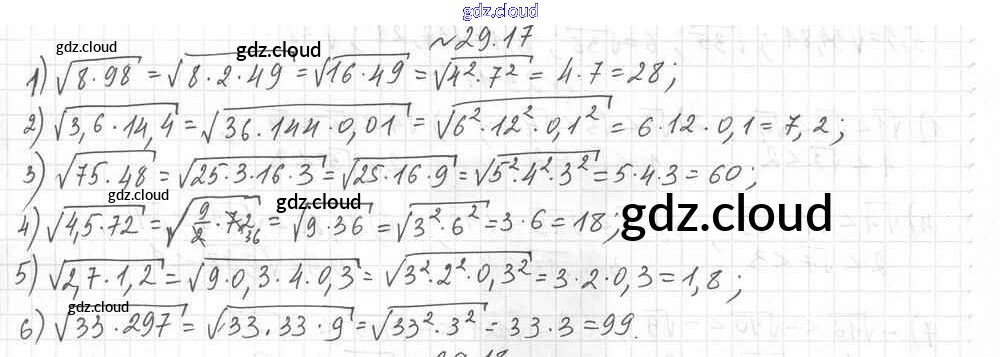 gdz.cloud
№29.17
gdz.cloud
gdz.cloud
1) √8·98 = √8·2·49 = √16·49 = √4²·7² = 4·7=28;
2) √3,6·14,4 = √36·144·0,01 = √6²·12²·0,1² = 6·12·0,1=7,2;
3) √75·48 = √25·3·16·3 = √25·16·9 = √5²·4²·3² = 5·4·3=60;
gdz.cloud
gdz.cloud
gdz.cloud
4) √4,5·72 = √9/2·72 36 = √9·36 = √3²·6² = 3·6=18;
5) √2,7·1,2 = √9·0,3·4·0,3 = √3²·2²·0,3² = 3·2·0,3=1,8;
gdz.cloud
6) √33·297 = √33·33·9 = √33²·3² = 33·3=99.